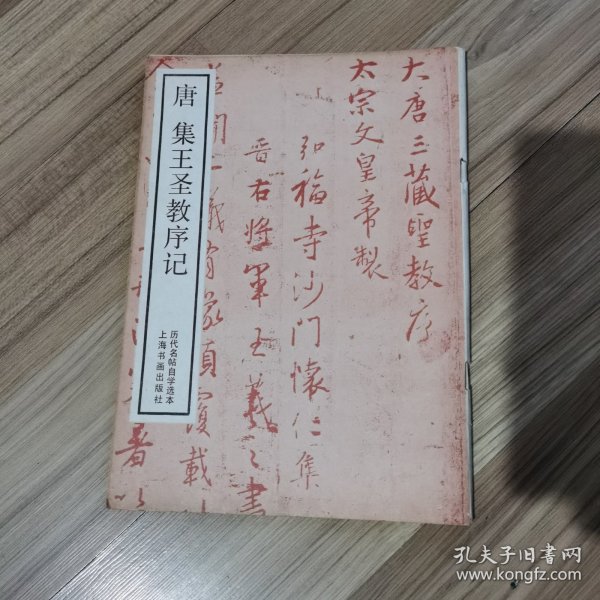 唐 集王圣教序记
历代名帖自学选本
上海书画出版社
大唐三藏聖教序
太宗文皇帝製
弘福寺沙門懷仁集
晋右將軍王羲之書
孔夫子旧书网
www.kongfz.com